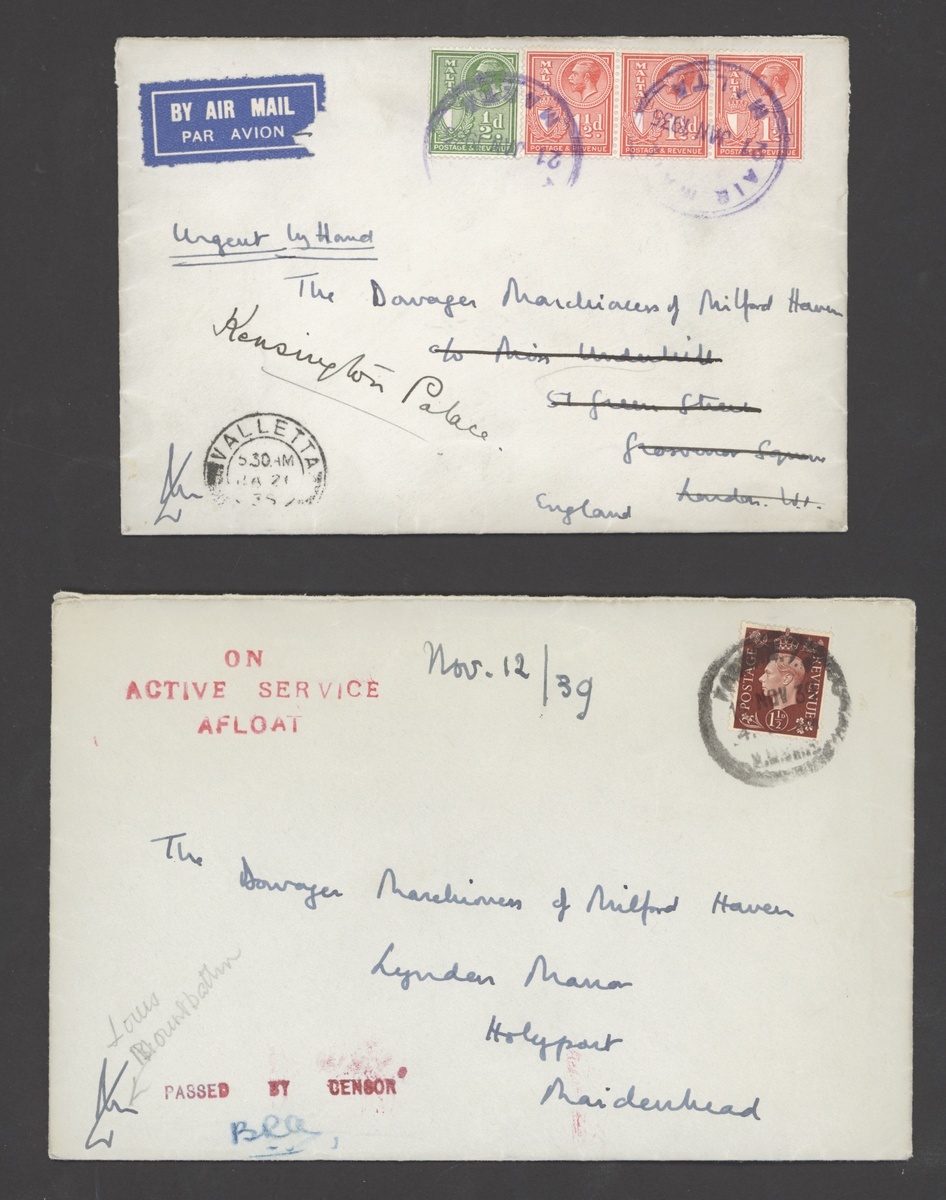 BY AIR MAIL
PAR AVION
MALTA
½d.
POSTAGE & REVENUE
MALTA
1½d
POSTAGE & REVENUE
1½d
POSTAGE & REVENUE
1½
POSTAGE & REVENUE
21
MALTA
21 AIR
Urgent by Hand
The Dowager Marchioness of Milford Haven
c/o Miss Underhill
51 Green Street
Grosvenor Square
London. W.1.
England
Kensington Palace.
VALLETTA
5.30 AM
JA 21
35
ON
ACTIVE SERVICE
AFLOAT
Nov. 12/39
POSTAGE
REVENUE
1½D
NOV
The
Dowager Marchioness of Milford Haven
Lynden Manor
Holyport
Maidenhead
Louis
Mountbatten
PASSED BY CENSOR